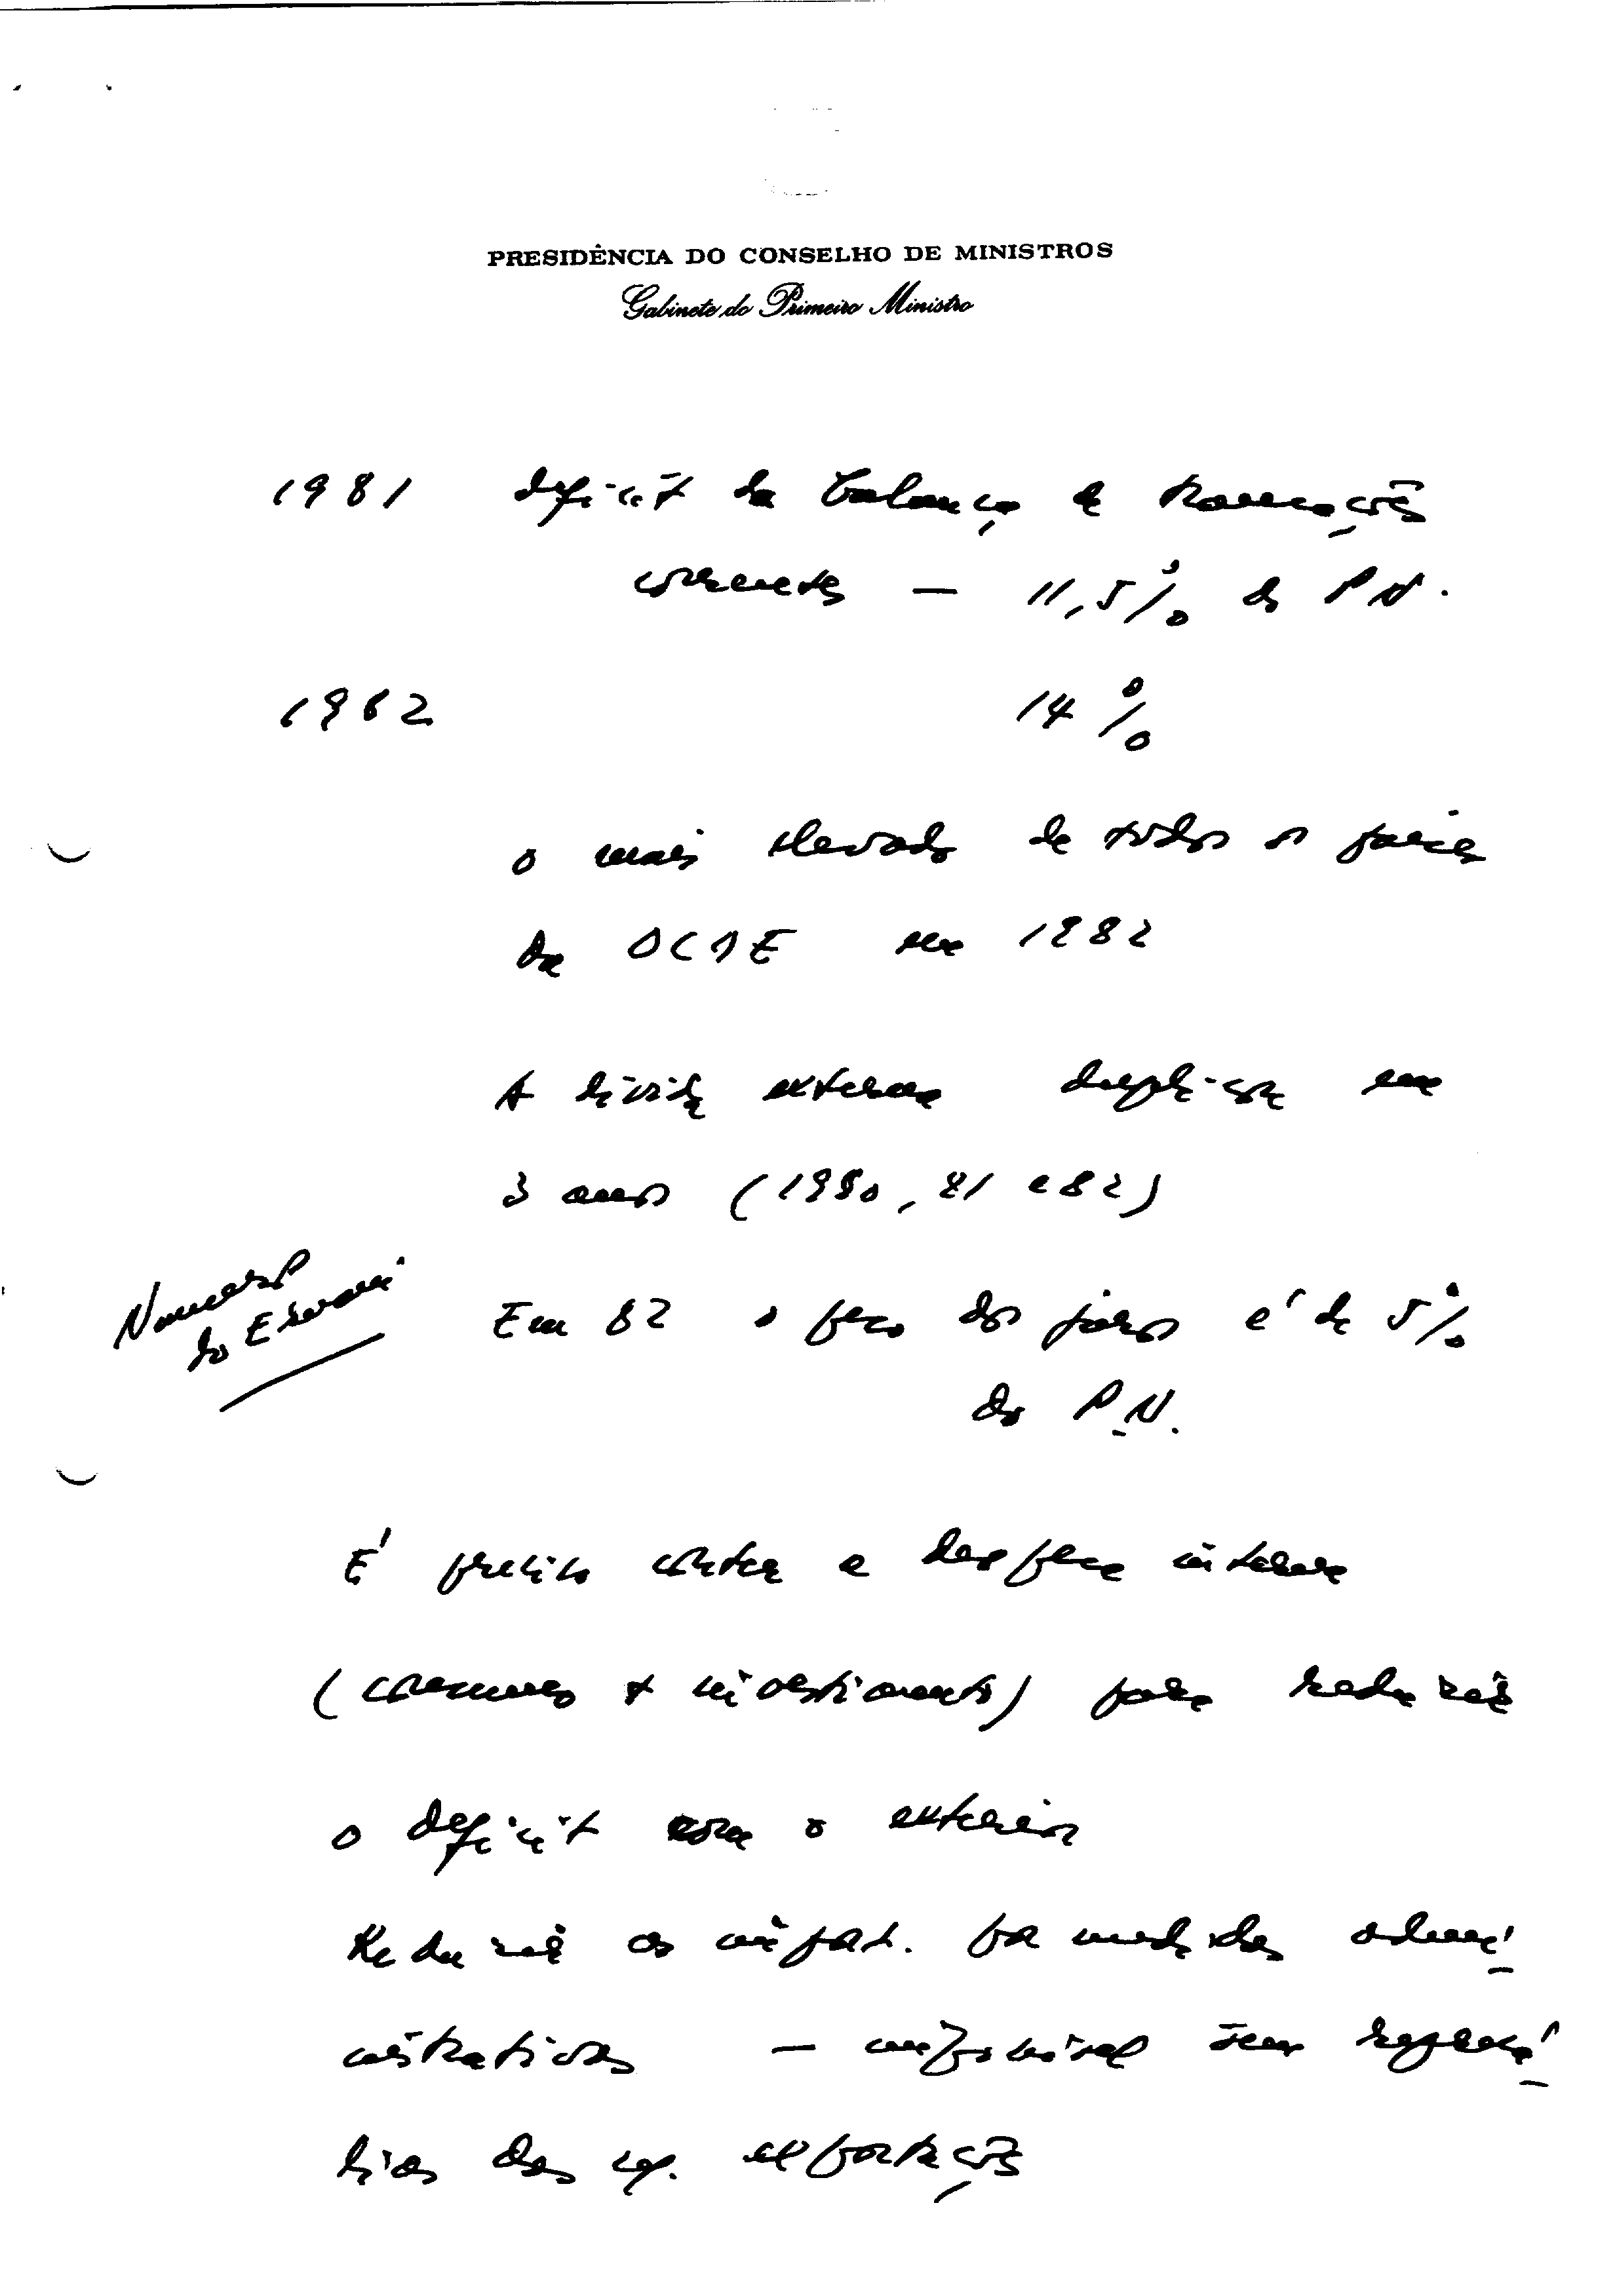 PRESIDÊNCIA DO CONSELHO DE MINISTROS
Gabinete do Primeiro Ministro
1981 deficit da balança de transacções
correntes — 11,5% do PN.
1982 14%
o mais elevado de todos os países
da OCDE em 1982
A dívida externa duplica em
3 anos (1980, 81 e 82)
Em 82 o peso dos juros é de 5%
do P.N.
É preciso conter a despesa interna
(consumo + investimento) para reduzir
o deficit com o exterior
Reduzir as import. por medidas admi-
nistrativas — impossível sem
das exportações